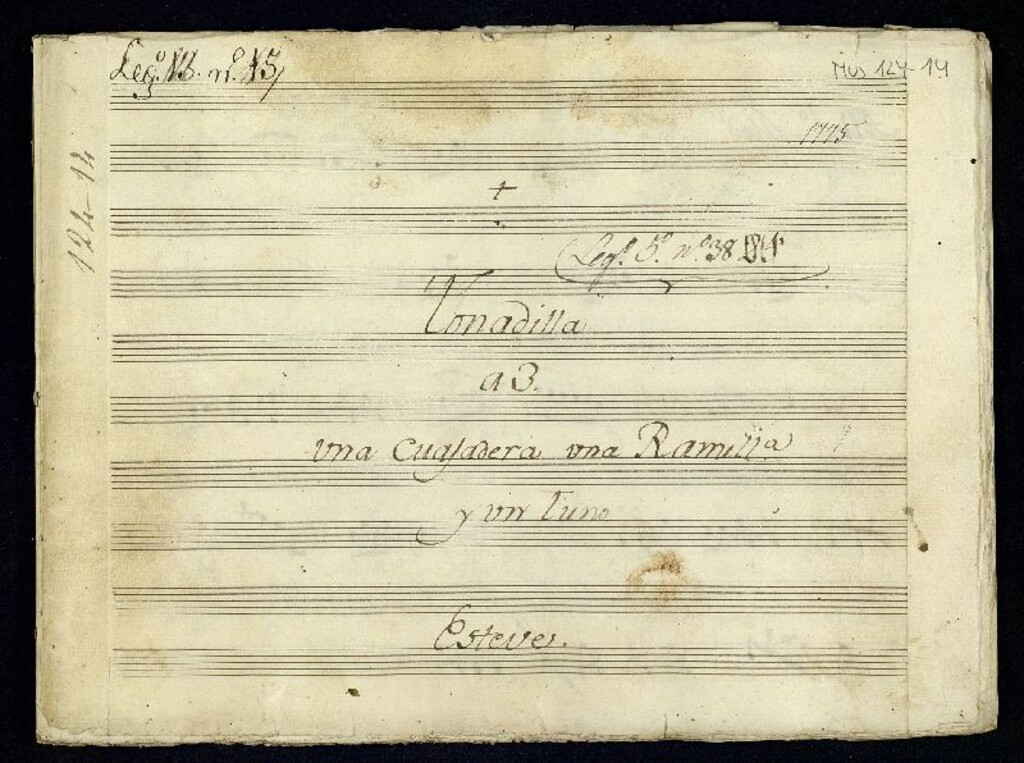 Leg.º nº. 15
Mus 124-14
1775
124-14
+
Leg.º 5.º n.º 38
Tonadilla
a 3.
vna Cuajadera vna Ramill.ª
y vn tuno
Esteve.